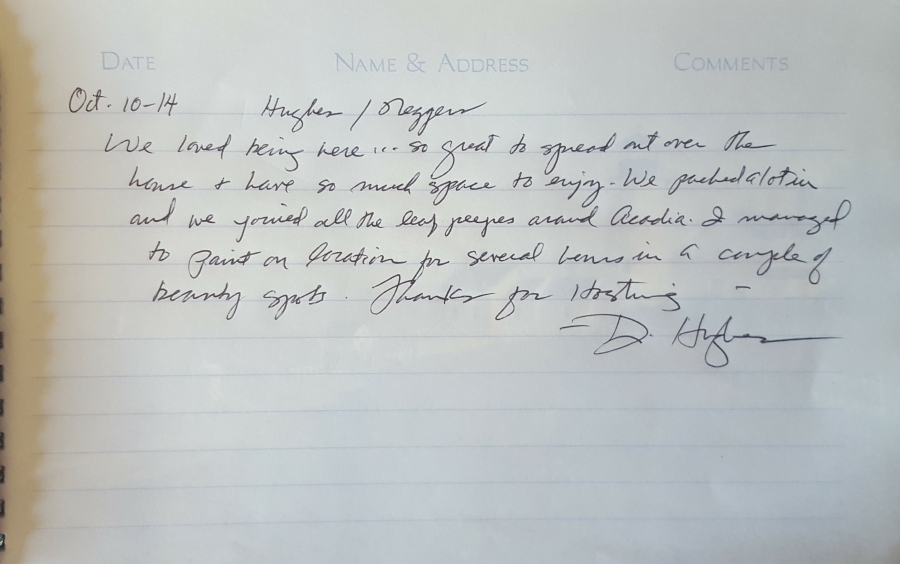 DATE NAME & ADDRESS COMMENTS
Oct. 10-14 Hughes /
We loved being here ... so great to spread out over the
house + have so much space to enjoy. We packed a lot in
and we joined all the leaf peepes around Acadia. I managed
to paint on location for several hours in a couple of
beauty spots. Thanks for Hosting -
- D. Hughes